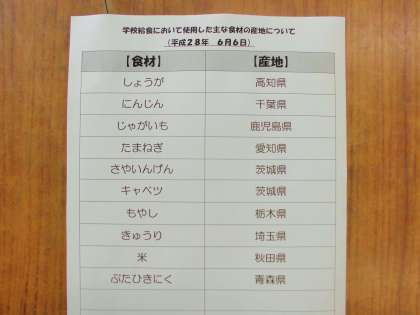 学校給食において使用した主な食材の産地について
（平成２８年　６月６日）
【食材】　【産地】
しょうが　高知県
にんじん　千葉県
じゃがいも　鹿児島県
たまねぎ　愛知県
さやいんげん　茨城県
キャベツ　茨城県
もやし　栃木県
きゅうり　埼玉県
米　秋田県
ぶたひきにく　青森県